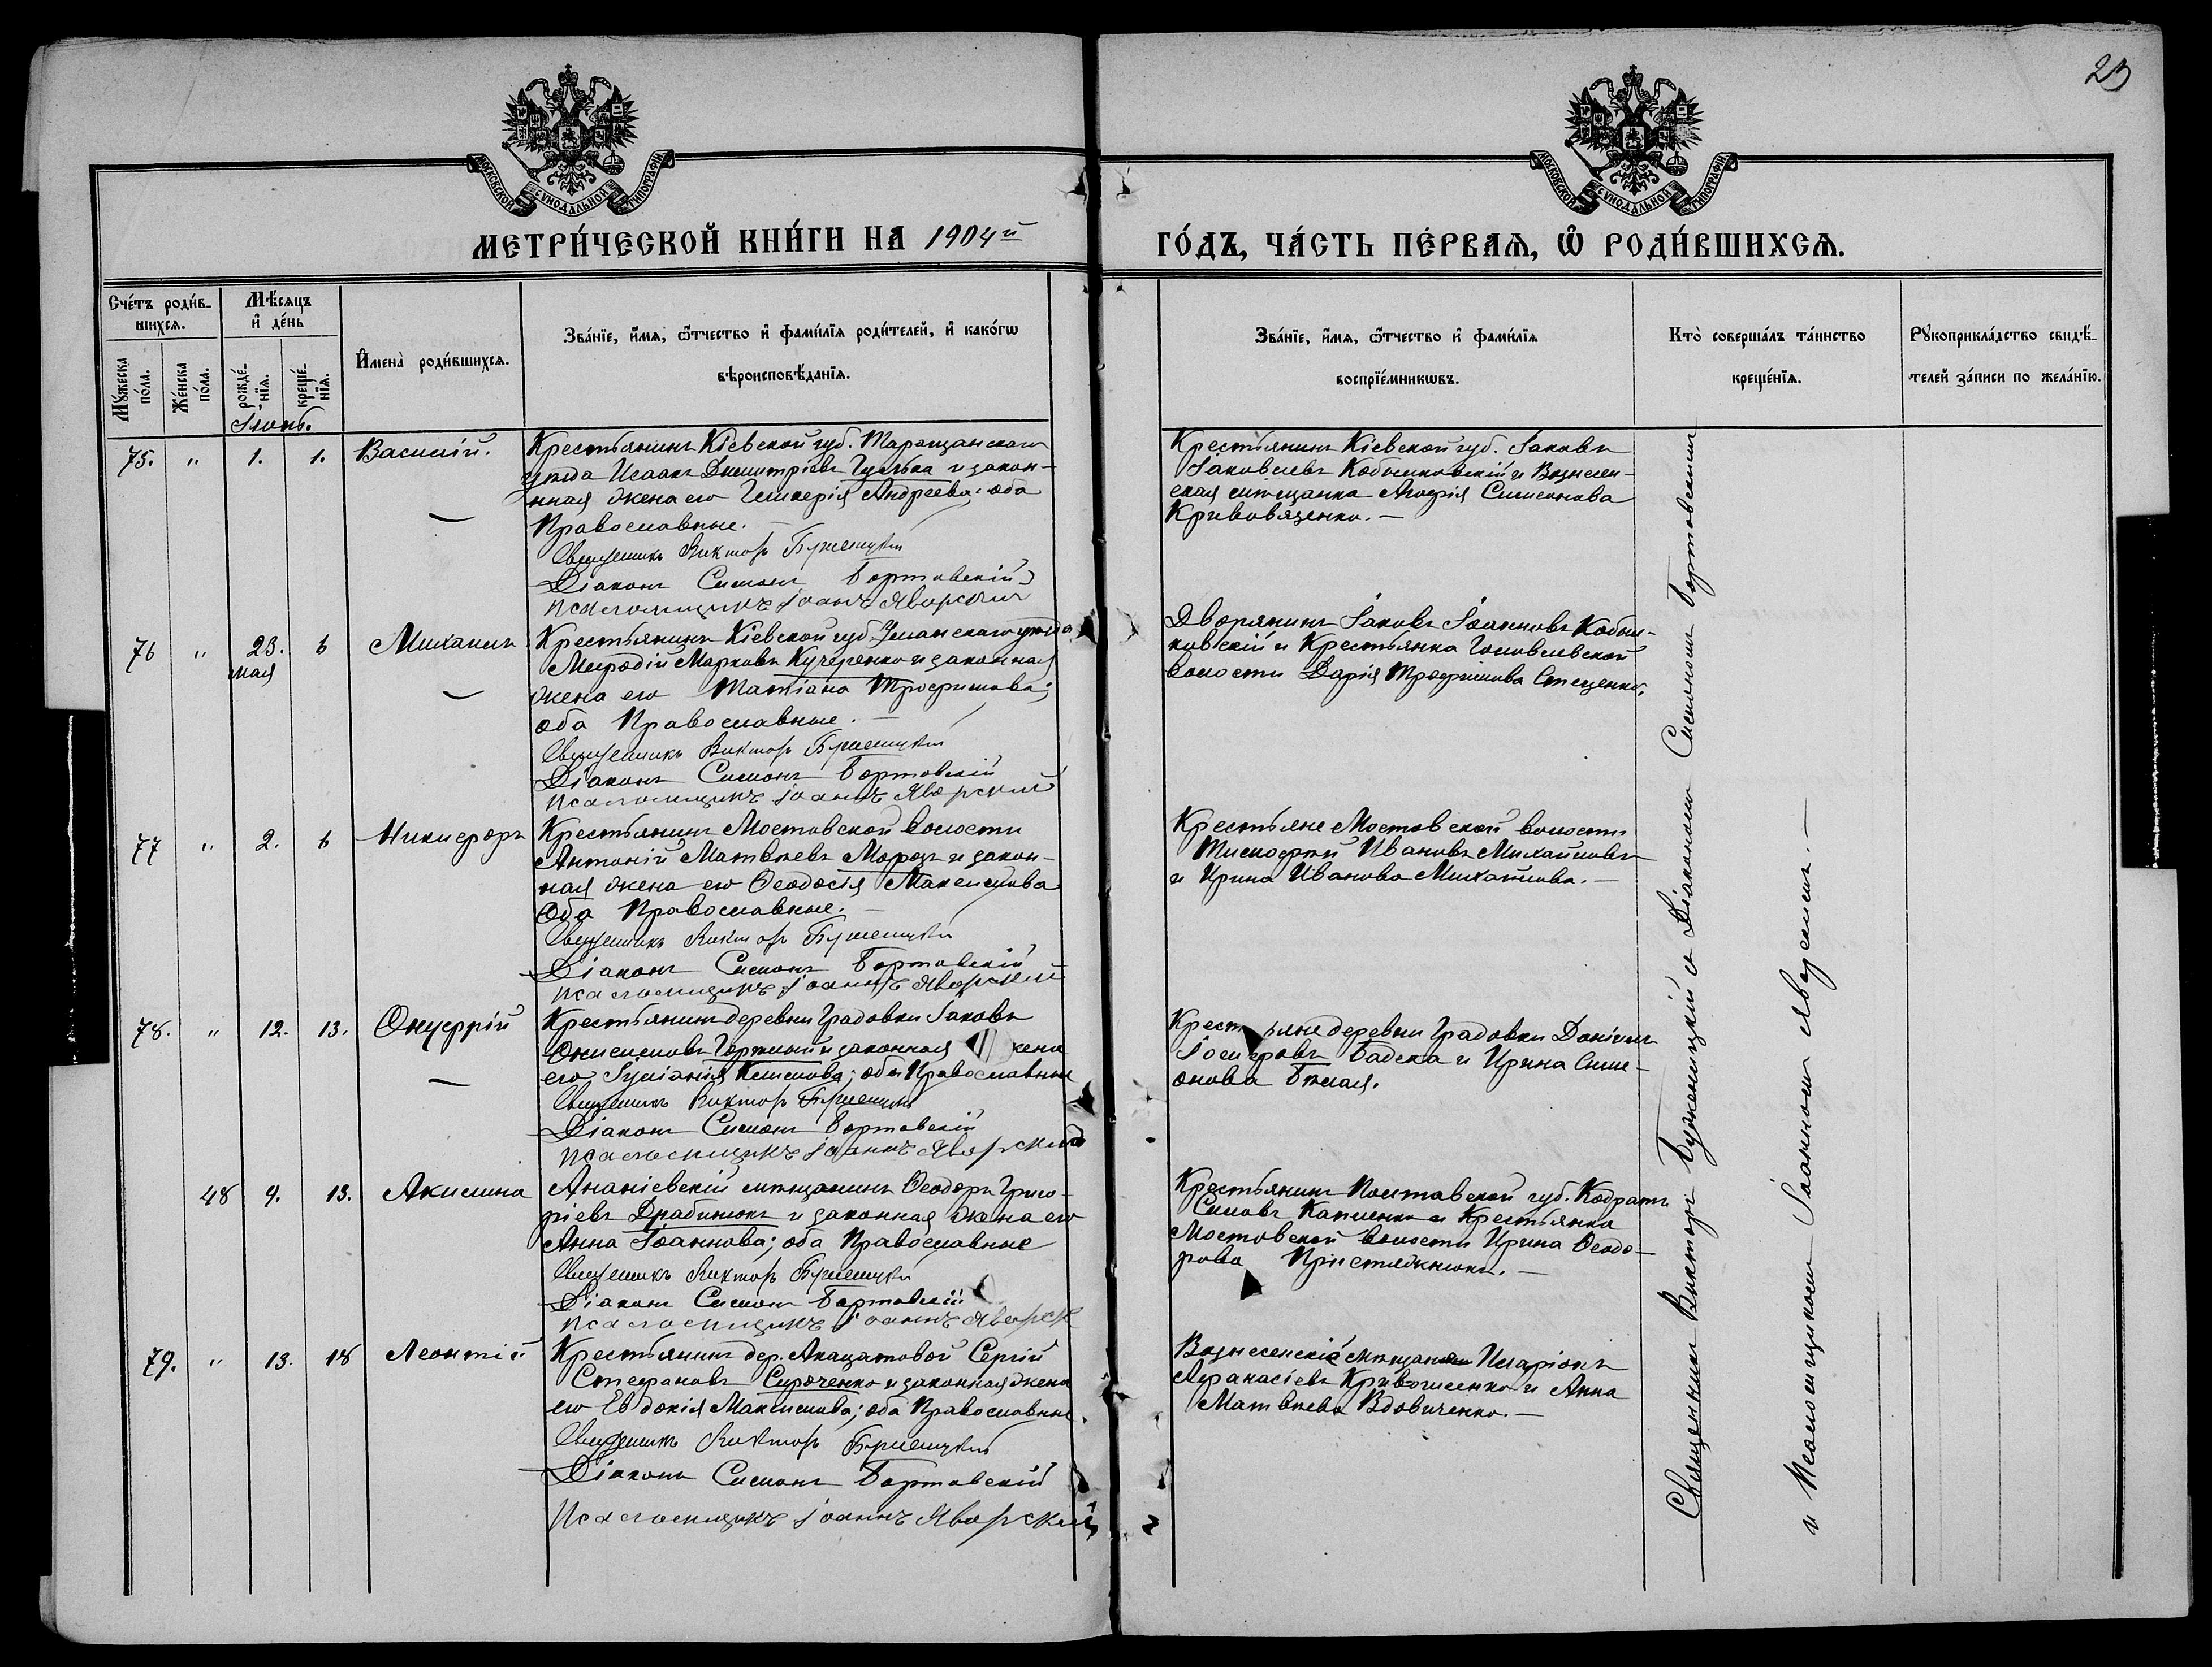 23
МОСКОВСКОЙ СѴНОДАЛЬНОЙ ТИПОГРАФІИ
МОСКОВСКОЙ СѴНОДАЛЬНОЙ ТИПОГРАФІИ
МЕТРИ́ЧЕСКОЙ КНИ́ГИ НА 1904й
ГО́ДЪ, ЧА́СТЬ ПЕ́РВАѦ, Ѡ҆ РОДИ́ВШИХСѦ.
Сче́тъ роди́в-
шихсѧ.
Мꙋ́жеска
по́ла.
Же́нска
по́ла.
Мѣ́сѧцъ
и҆ де́нь
рожде́-
нїѧ.
креще́-
нїѧ.
И҆мена̀ роди́вшихсѧ.
Зва́нїе, и҆́мѧ, ѻ҆́тчество и҆ фами́лїѧ роди́телей, и҆ како́гѡ
вѣроисповѣ́данїѧ.
Зва́нїе, и҆́мѧ, ѻ҆́тчество и҆ фами́лїѧ
воспрїе́мникѡвъ.
Кто̀ соверша́лъ та́инство
креще́нїѧ.
Рꙋкоприкла́дство свидѣ́-
телей за́писи по жела́нїю.
Іюнь.
75. " 1. 1. Василій.
Крестьянинъ Кіевской губ. Таращанскаго
уѣзда Исаакъ Димитріевъ Гулька и закон-
нная жена его Гликерія Андреева; оба
Православные. —
Священникъ Викторъ
Діаконъ Симонъ Бортовскій
псаломщикъ Іоаннъ Яворскій
Крестьянинъ Кіевской губ. Іаковъ
Іаковлевъ Кобылковскій и Вознесен-
ская мѣщанка Агафія Симеонова
Кривовяценко. —
76 " 23. мая 6 Михаилъ
Крестьянинъ Кіевской губ. Уманскаго уѣзда
Меѳодій Марковъ Кучеренко и законная
жена его Татіана Трофимова;
оба Православные. —
Священникъ Викторъ
Діаконъ Симонъ Бортовскій
псаломщикъ Іоаннъ Яворскій
Дворянинъ Іаковъ Іоанновъ Кобыл-
ковскій и Крестьянка Головлевской
волости Дарія Трофимова Стеценко.
77 " 2. 6 Никифоръ
Крестьянинъ Мостовской волости
Антоній Матвѣевъ Морозъ и закон-
ная жена его Ѳеодосія Максимова
Оба Православные. —
Священникъ Викторъ
Діаконъ Симонъ Бортовскій
псаломщикъ Іоаннъ Яворскій
Крестьяне Мостовской волости
Тимофей Ивановъ Михайловъ
и Ирина Иванова Михайлова. —
78. " 12. 13. Онуфрій
Крестьянинъ деревни Градовки Іаковъ
Онисимовъ и законная жена
его Іуліанія Климова; оба Православные
Священникъ Викторъ
Діаконъ Симонъ Бортовскій
псаломщикъ Іоаннъ Яворскій
Крестьяне деревни Градовки Даніилъ
Іосифовъ Бабека и Ирина Симе-
онова Бѣлая.
48 9. 13. Акилина
Ананіевскій мѣщанинъ Ѳеодоръ Григо-
ріевъ Драбинюкъ и законная жена его
Анна Іоаннова; оба Православные
Священникъ Викторъ
Діаконъ Симонъ Бортовскій
псаломщикъ Іоаннъ Яворск
Крестьянинъ Полтавской губ. Кодратъ
Силовъ Капленко и Крестьянка
Мостовской волости Ирина Ѳеодо-
рова Пристяжнюкъ. —
79. " 13. 18 Леонтій
Крестьянинъ дер. Акацатовой Сергій
Стефановъ Сироченко и законная жена
его Евдокія Максимова; оба Православные.
Священникъ Викторъ
Діаконъ Симонъ Бортовскій
Псаломщикъ Іоаннъ Яворскій
Вознесенскіе мѣщане Иларіонъ
Афанасіевъ Кривошеенко и Анна
Матвѣева Вдовиченко. —
Священникъ Викторъ Буженицкій съ Діакономъ Симономъ Бортовскимъ
и Псаломщикомъ Іоанномъ Яворскимъ. —